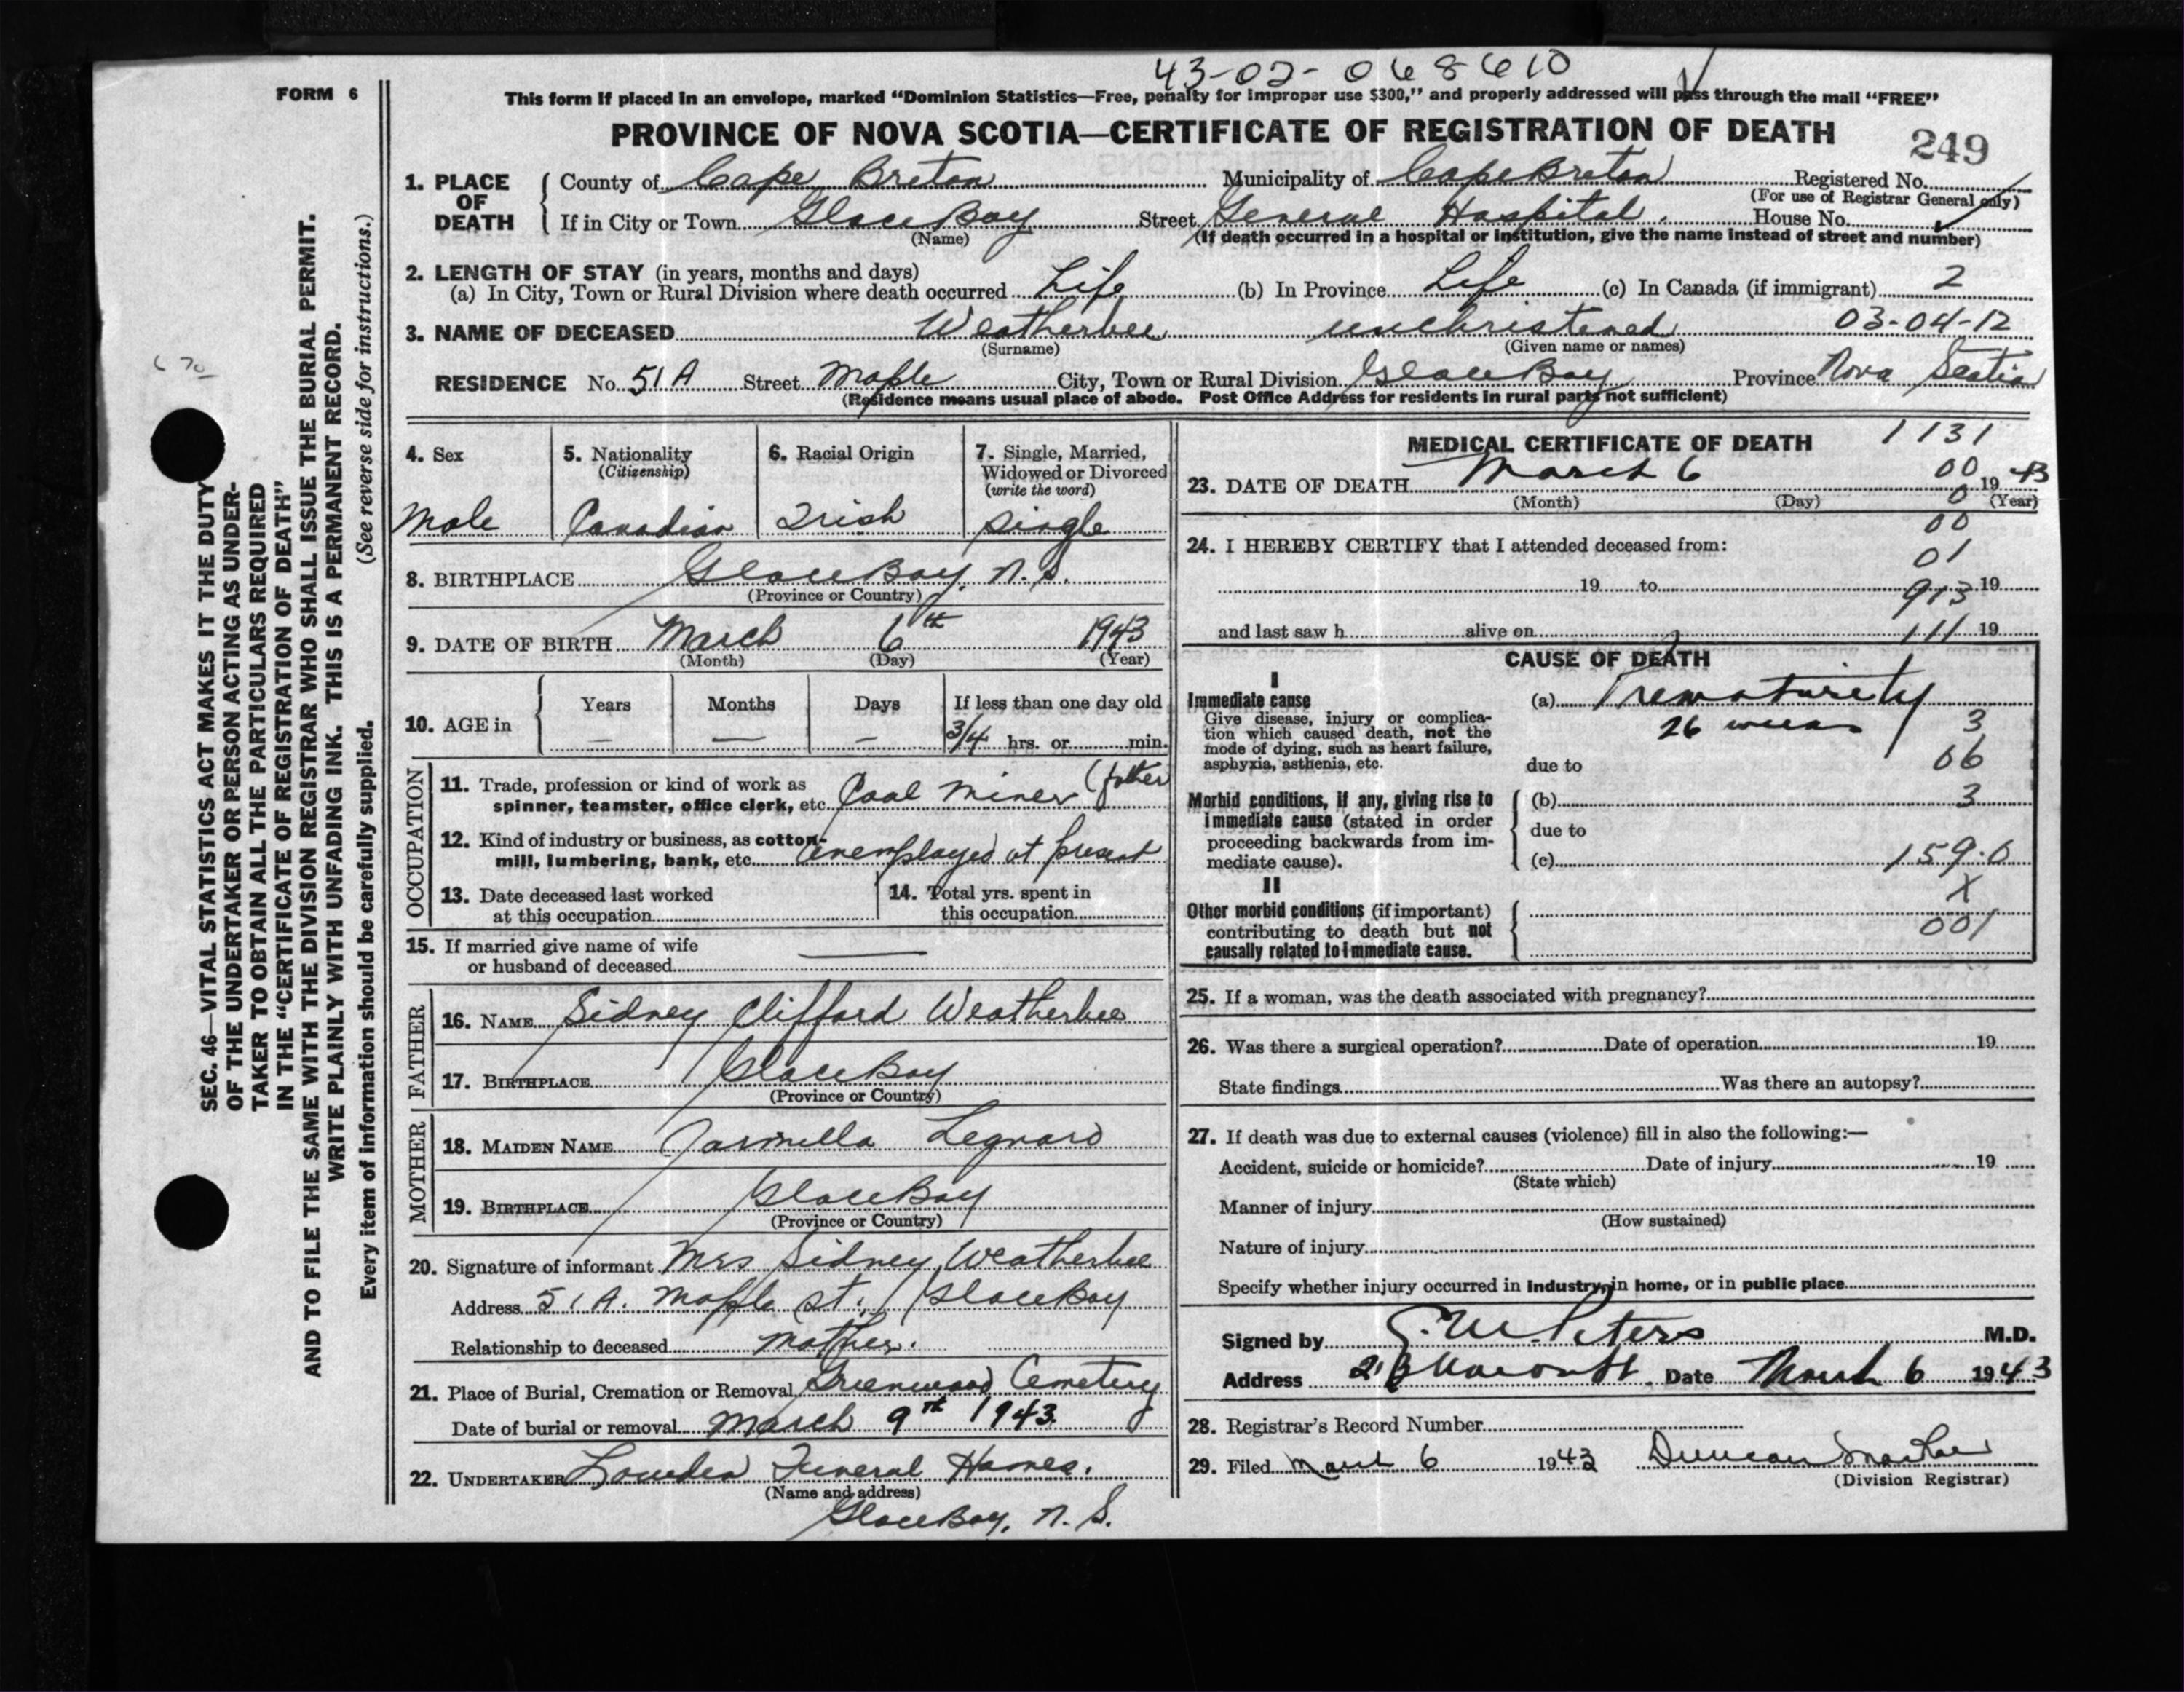 43-02-068610
FORM 6
This form if placed in an envelope, marked “Dominion Statistics—Free, penalty for improper use $300,” and properly addressed will pass through the mail “FREE”
PROVINCE OF NOVA SCOTIA—CERTIFICATE OF REGISTRATION OF DEATH
249
1. PLACE OF DEATH
County of Cape Breton Municipality of Cape Breton Registered No.
(For use of Registrar General only)
If in City or Town Glace Bay Street General Hospital. House No.
(Name) (If death occurred in a hospital or institution, give the name instead of street and number)
2. LENGTH OF STAY (in years, months and days)
(a) In City, Town or Rural Division where death occurred Life (b) In Province Life (c) In Canada (if immigrant) 2
3. NAME OF DECEASED Weatherbee unchristened 03-04-12
(Surname) (Given name or names)
RESIDENCE No. 51A Street Maple City, Town or Rural Division Glace Bay Province Nova Scotia
(Residence means usual place of abode. Post Office Address for residents in rural parts not sufficient)
4. Sex
Male
5. Nationality
(Citizenship)
Canadian
6. Racial Origin
Irish
7. Single, Married,
Widowed or Divorced
(write the word)
Single
8. BIRTHPLACE Glace Bay, N.S.
(Province or Country)
9. DATE OF BIRTH March 6th 1943
(Month) (Day) (Year)
10. AGE in
Years Months Days If less than one day old
— — — 3/4 hrs. or min.
OCCUPATION
11. Trade, profession or kind of work as
spinner, teamster, office clerk, etc. Coal Miner (father
12. Kind of industry or business, as cotton-
mill, lumbering, bank, etc. Unemployed at present
13. Date deceased last worked
at this occupation
14. Total yrs. spent in
this occupation
15. If married give name of wife
or husband of deceased —
FATHER
16. NAME Sidney Clifford Weatherbee
17. BIRTHPLACE Glace Bay
(Province or Country)
MOTHER
18. MAIDEN NAME Legnard
19. BIRTHPLACE Glace Bay
(Province or Country)
20. Signature of informant Mrs Sidney Weatherbee
Address 51A. Maple St., Glace Bay
Relationship to deceased mother.
21. Place of Burial, Cremation or Removal Greenwood Cemetery
Date of burial or removal March 9th 1943
22. UNDERTAKER Funeral Homes.
(Name and address)
Glace Bay, N.S.
MEDICAL CERTIFICATE OF DEATH 1131
00
23. DATE OF DEATH March 6 1943
(Month) (Day) 0 (Year)
00
24. I HEREBY CERTIFY that I attended deceased from:
01
19 to 913 19
and last saw h alive on 111 19
CAUSE OF DEATH
I
Immediate cause
Give disease, injury or complica-
tion which caused death, not the
mode of dying, such as heart failure,
asphyxia, asthenia, etc.
(a) Prematurity
26 weeks 3
due to 06
Morbid conditions, if any, giving rise to
immediate cause (stated in order
proceeding backwards from im-
mediate cause).
(b) 3
due to
(c) 159.0
II X
Other morbid conditions (if important)
contributing to death but not
causally related to immediate cause.
001
25. If a woman, was the death associated with pregnancy?
26. Was there a surgical operation? Date of operation 19
State findings Was there an autopsy?
27. If death was due to external causes (violence) fill in also the following:—
Accident, suicide or homicide? Date of injury 19
(State which)
Manner of injury
(How sustained)
Nature of injury
Specify whether injury occurred in industry, in home, or in public place
Signed by Peters M.D.
Address Date March 6 1943
28. Registrar's Record Number
29. Filed March 6 1943 Duncan
(Division Registrar)
SEC. 46—VITAL STATISTICS ACT MAKES IT THE DUTY
OF THE UNDERTAKER OR PERSON ACTING AS UNDER-
TAKER TO OBTAIN ALL THE PARTICULARS REQUIRED
IN THE “CERTIFICATE OF REGISTRATION OF DEATH”
AND TO FILE THE SAME WITH THE DIVISION REGISTRAR WHO SHALL ISSUE THE BURIAL PERMIT.
WRITE PLAINLY WITH UNFADING INK. THIS IS A PERMANENT RECORD.
Every item of information should be carefully supplied. (See reverse side for instructions.)